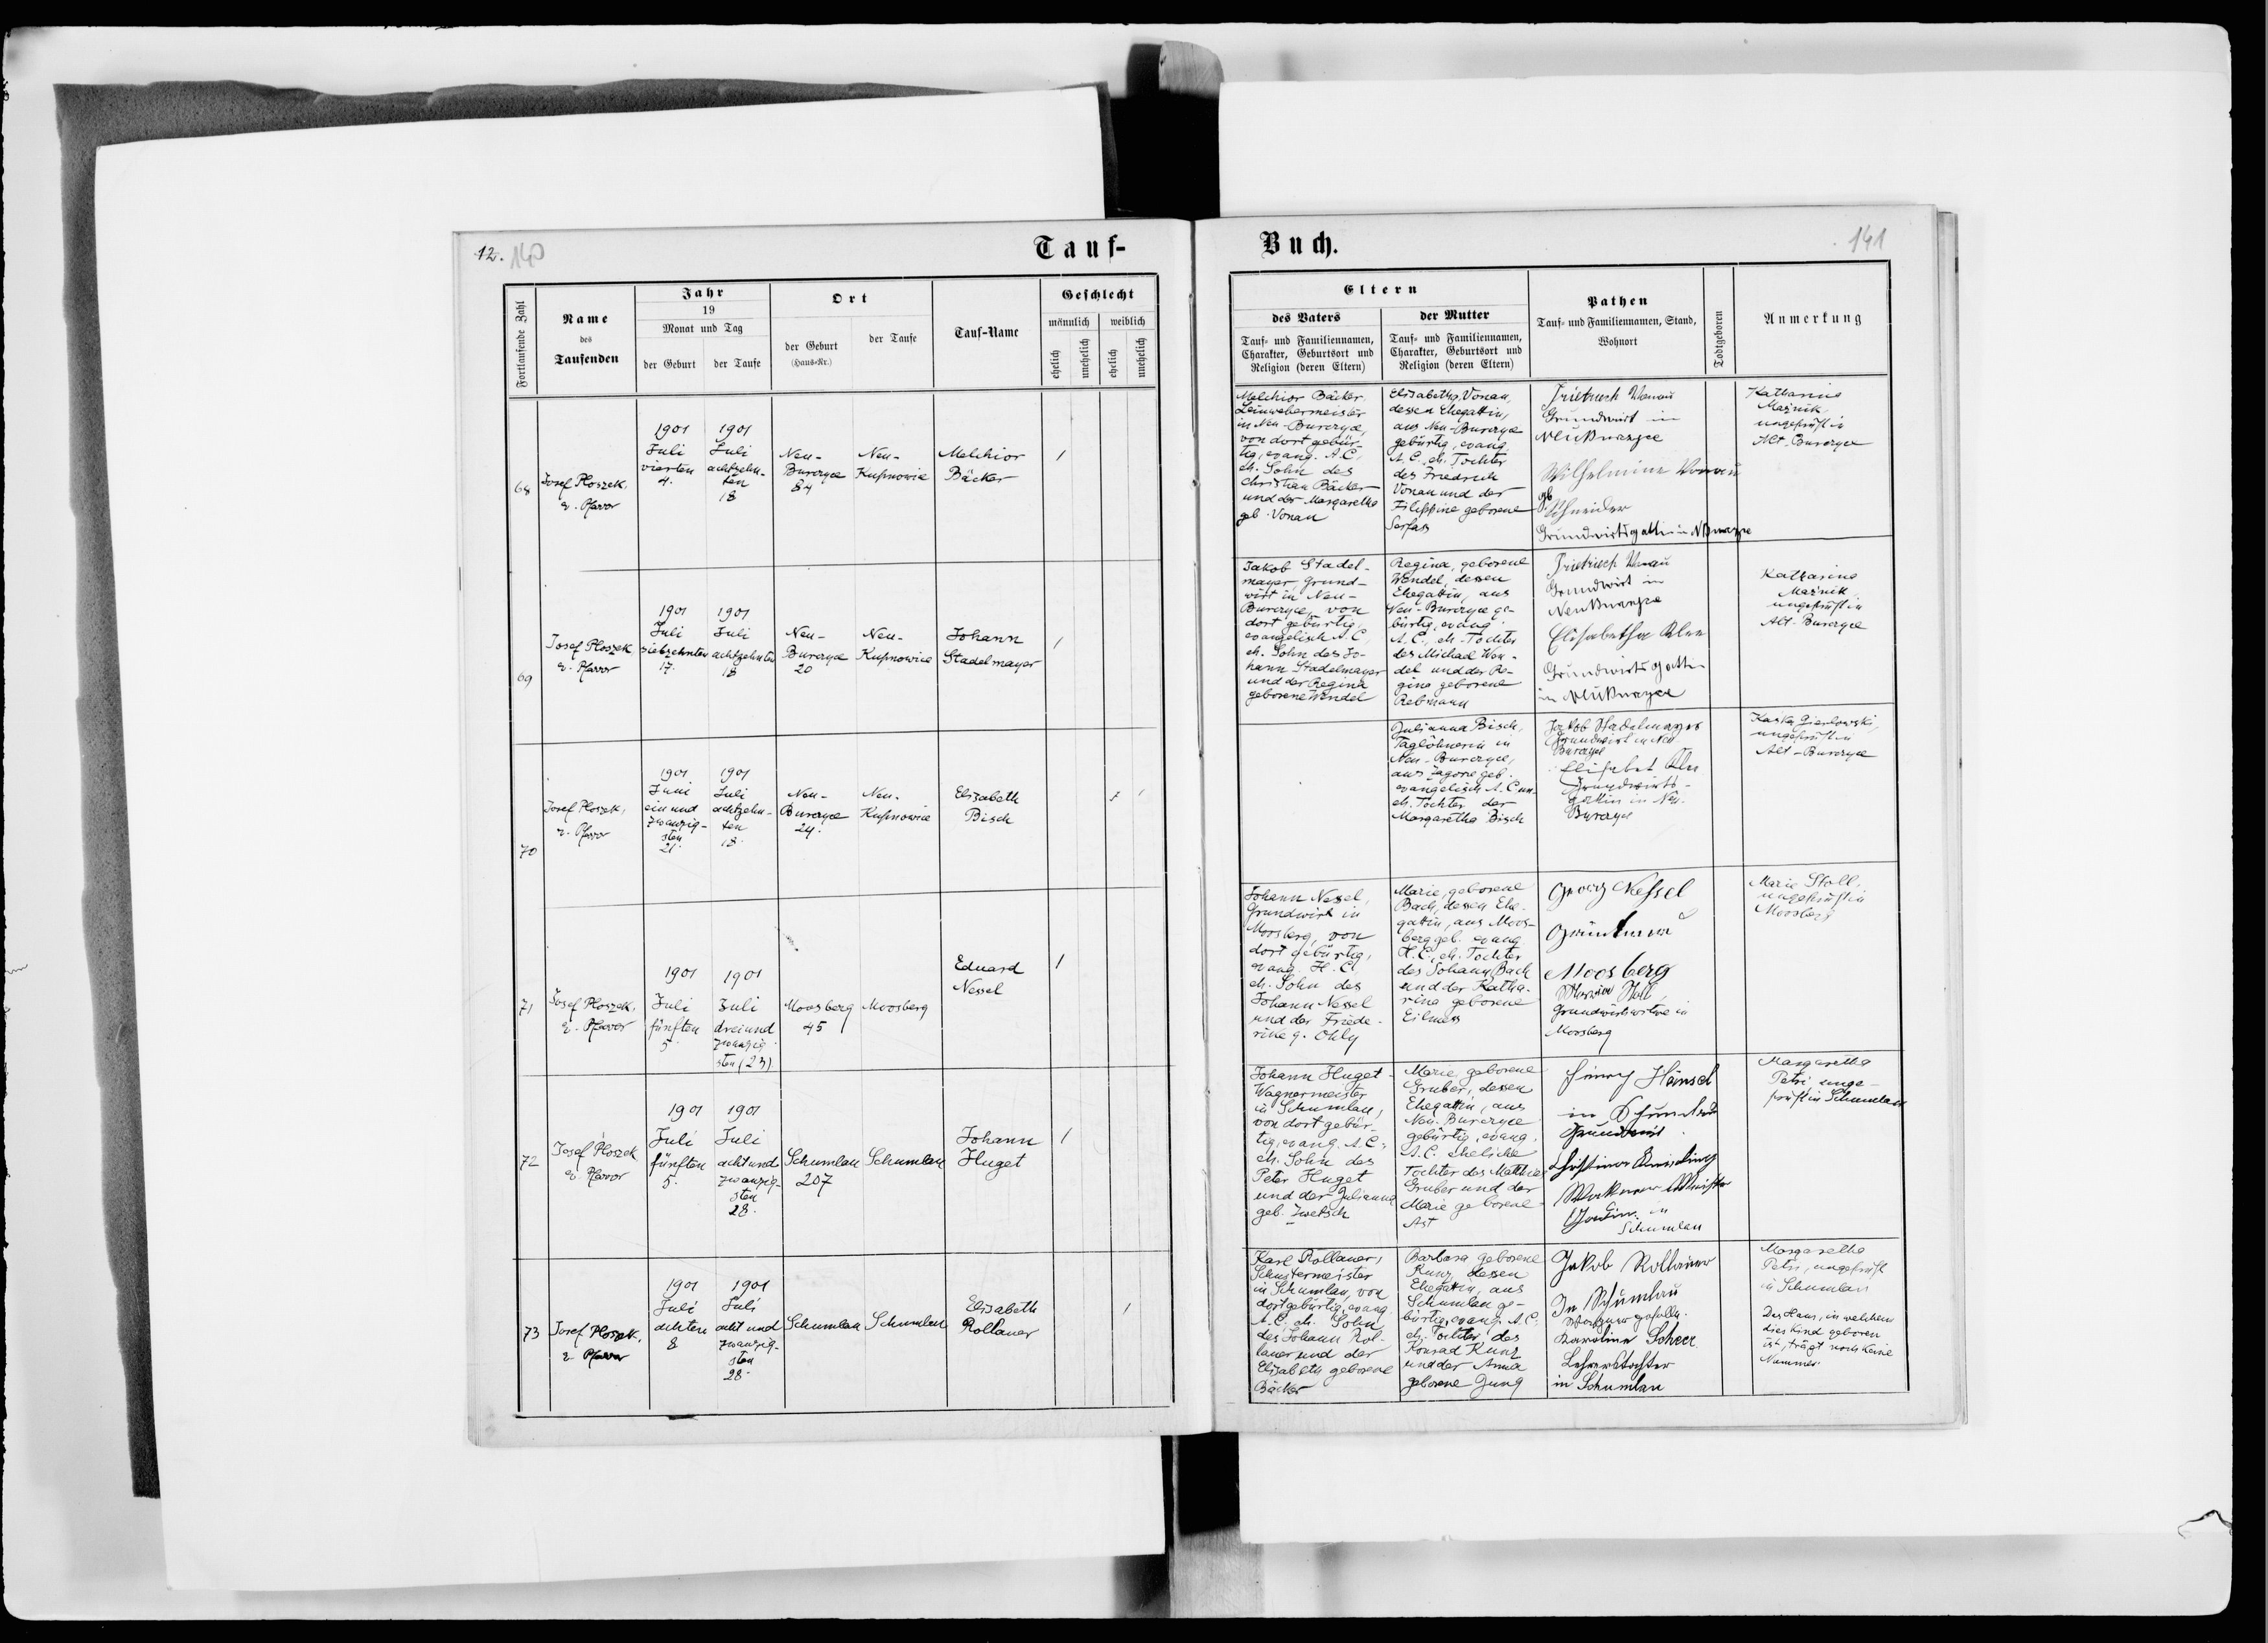 12. 140
Tauf-
Buch.
141
Fortlaufende Zahl
Name
des
Taufenden
Jahr
19
Monat und Tag
der Geburt
der Taufe
Ort
der Geburt
(Haus-Nr.)
der Taufe
Tauf-Name
Geschlecht
männlich
weiblich
ehelich
unehelich
ehelich
unehelich
Eltern
des Vaters
Tauf- und Familiennamen,
Charakter, Geburtsort und
Religion (deren Eltern)
der Mutter
Tauf- und Familiennamen,
Charakter, Geburtsort und
Religion (deren Eltern)
Pathen
Tauf- und Familiennamen, Stand,
Wohnort
Todtgeboren
Anmerkung
68
Josef Ploszek,
ev. Pfarrer
1901
Juli
vierten
4.
1901
Juli
achtzehn-
ten
18
Neu-
Burczyce
84
Neu-
Kupnowice
Melchior
Bäcker
1
Melchior Bäcker,
Leinwebermeister
in Neu-Burczyce,
von dort gebür-
tig, evang. A.C.,
eh. Sohn des
Christian Bäcker
und der Margaretha
geb. Vonau
Elisabetha Vonau,
dessen Ehegattin,
aus Neu-Burczyce
gebürtig, evang.
A.C., eh. Tochter
des Friedrich
Vonau und der
Filippine geborene
Serfass
Friedrich Vonau
Grundwirt in
Wilhelmine Vonau
gb
Schneider
Grundwirtsgattin in
Katharina
Maźnik,
ungeprüft in
Alt-Burczyce
69
Josef Ploszek,
ev. Pfarrer
1901
Juli
siebzehnten
17.
1901
Juli
achtzehnten
18
Neu-
Burczyce
20
Neu-
Kupnowice
Johann
Stadelmayer
1
Jakob Stadel-
mayer, Grund-
wirt in Neu-
Burczyce, von
dort gebürtig,
evangelisch A.C.,
eh. Sohn des Jo-
hann Stadelmayer
und der Regina
geborene Wendel
Regina, geborene
Wendel, dessen
Ehegattin, aus
Neu-Burczyce ge-
bürtig, evang.
A.C., eh. Tochter
des Michael Wen-
del und der Re-
gina geborene
Rebmann
Friedrich Vonau
Grundwirt in
Elisabetha Klee
Grundwirtsgattin
in
Katharina
Maźnik,
ungeprüft in
Alt-Burczyce
70
Josef Ploszek,
ev. Pfarrer
1901
Juni
ein und
zwanzig-
sten
21.
1901
Juli
achtzehn-
ten
18.
Neu-
Burczyce
24.
Neu-
Kupnowice
Elisabeth
Bisch
1
Julianna Bisch,
Taglöhnerin in
Neu-Burczyce,
aus Zagorie geb.
evangelisch A.C. un-
eh. Tochter der
Margaretha Bisch
Jakob Stadelmayer
Grundwirt in Neu
Burczyce
Elisabet Klee
Grundwirts-
gattin in Neu-
Burczyce
ungeprüft in
Alt-Burczyce
71
Josef Ploszek,
ev. Pfarrer
1901
Juli
fünften
5.
1901
Juli
drei und
zwanzig-
sten (23)
Moosberg
45
Moosberg
Eduard
Nessel
1
Johann Nessel,
Grundwirt in
Moosberg, von
dort gebürtig,
evang. H.C.,
eh. Sohn des
Johann Nessel
und der Friede-
rike g. Ohly
Marie, geborene
Bach, dessen Ehe-
gattin, aus Moos-
berg geb. evang.
H.C., eh. Tochter
des Johann Bach
und der Katha-
rina geborene
Eilmess
Georg Nessel
Moosberg
Grundwirtswitwe in
Moosberg
Marie Stoll,
ungeprüft in
Moosberg
72
Josef Ploszek
ev. Pfarrer
1901
Juli
fünften
5.
1901
Juli
acht und
zwanzig-
sten
28.
Schumlau
207
Schumlau
Johann
Huget
1
Johann Huget
Wagnermeister
in Schumlau,
von dort gebür-
tig, evang. A.C.,
eh. Sohn des
Peter Huget
und der Julianna
geb. Zwetsch
Marie, geborene
Gruber, dessen
Ehegattin, aus
Neu-Burczyce
gebürtig, evang.
A.C. Eheliche
Tochter des Matthias
Gruber und der
Marie geborene
Ast
Hänsel
in Schumlau
Grundwirt
in
Schumlau
Margaretha
Petri unge-
prüft in Schumlau
73
Josef Ploszek,
ev. Pfarrer
1901
Juli
achten
8
1901
Juli
acht und
zwanzig-
sten
28.
Schumlau
Schumlau
Elisabeth
Rollauer
1
Karl Rollauer,
Schustermeister
in Schumlau, von
dort gebürtig, evang.
A.C. eh. Sohn
des Johann Rol-
lauer und der
Elisabeth geborene
Bäcker
Barbara geborene
Kunz dessen
Ehegattin, aus
Schumlau ge-
bürtig, evang. A.C.
eh. Tochter des
Konrad Kunz
und der Anna
geborene Jung
Jakob Rollauer
In Schumlau
Karoline Scherer
Lehrerstochter
in Schumlau
Margaretha
Petri, ungeprüft
in Schumlau
Das Haus, in welchem
dies Kind geboren
ist, trägt noch keine
Nummer.